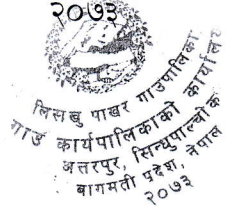 २०७३
लिसंखु पाखर गाउँपालिका
गाउँ कार्यपालिकाको कार्यालय
अत्तरपुर, सिन्धुपाल्चोक
बागमती प्रदेश, नेपाल
२०७३